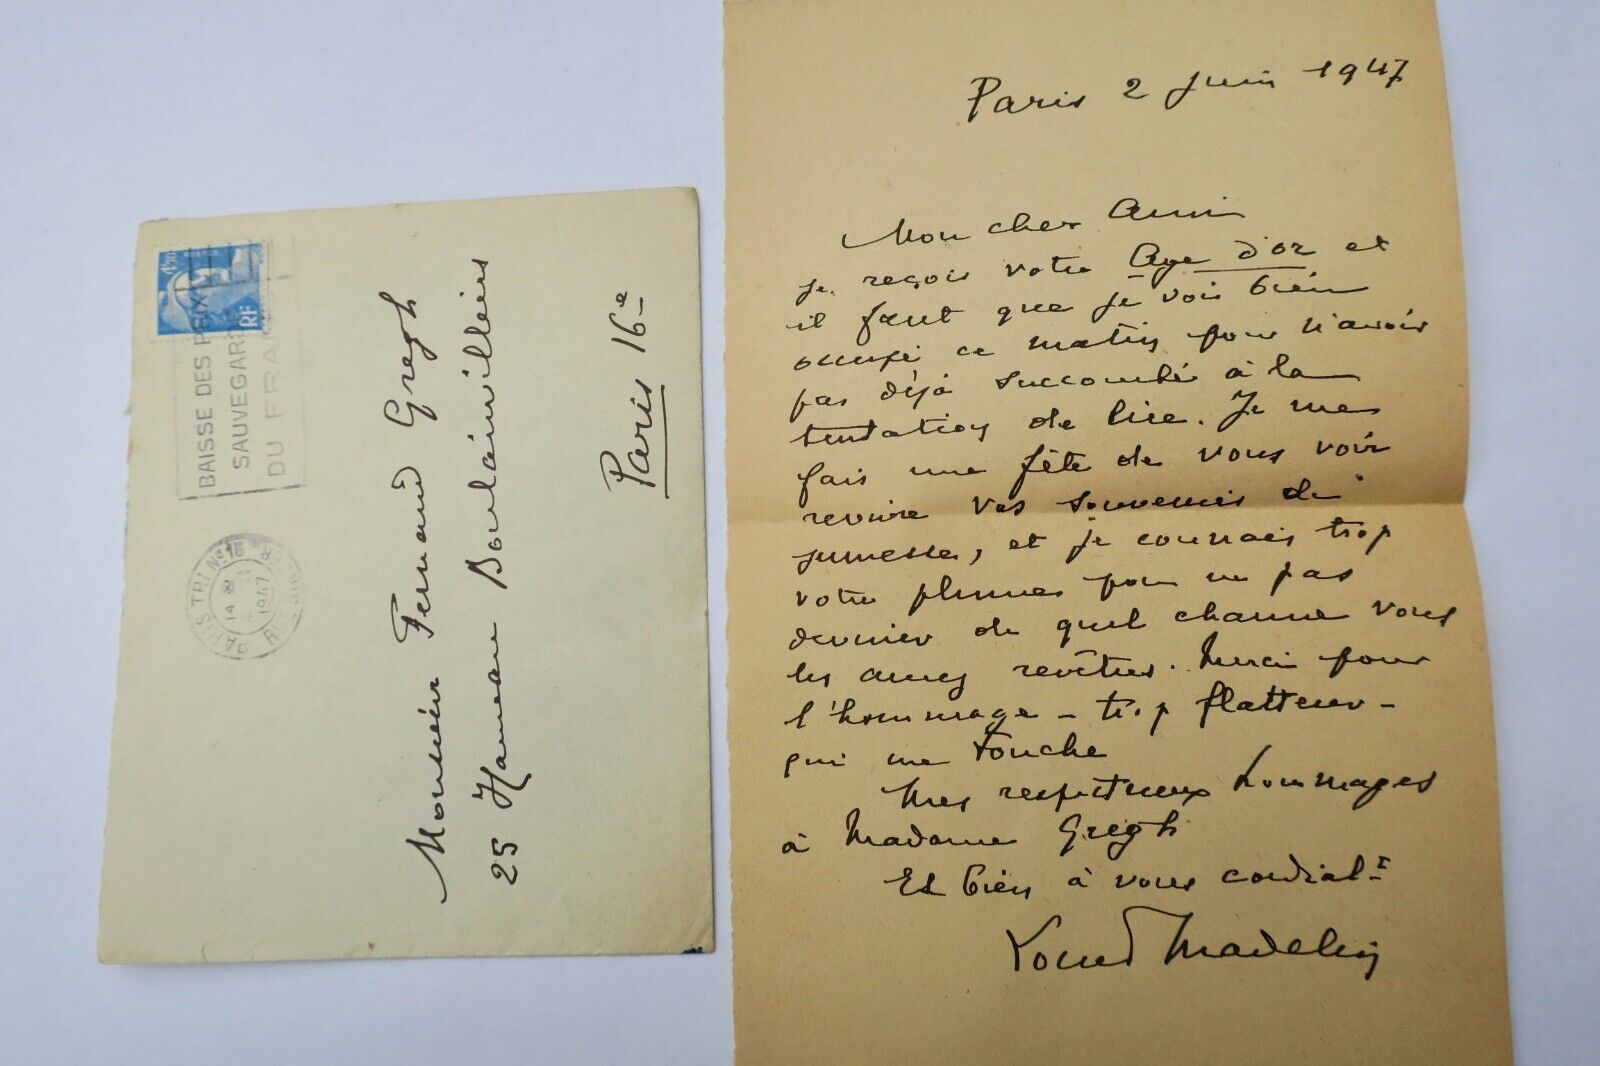 4F50
RF
BAISSE DES PRIX
SAUVEGARDE
DU FRANC
PARIS TRI Nº 1
14 H
1947
Monsieur Fernand Gregh
25 Hameau Boulainvilliers
Paris 16e
Paris 2 Juin 1947
Mon cher Ami
je reçois votre Age d'or et
il faut que je sois bien
occupé ce matin pour n'avoir
pas déjà succombé à la
tentation de lire. Je me
fais une fête de vous voir
revivre vos souvenirs de
jeunesse, et je connais trop
votre plume pour ne pas
deviner de quel charme vous
les aurez revêtus. Merci pour
l'hommage – trop flatteur –
qui me touche
Mes respectueux hommages
à Madame Gregh
Et bien à vous cordialt
Louis Madelin